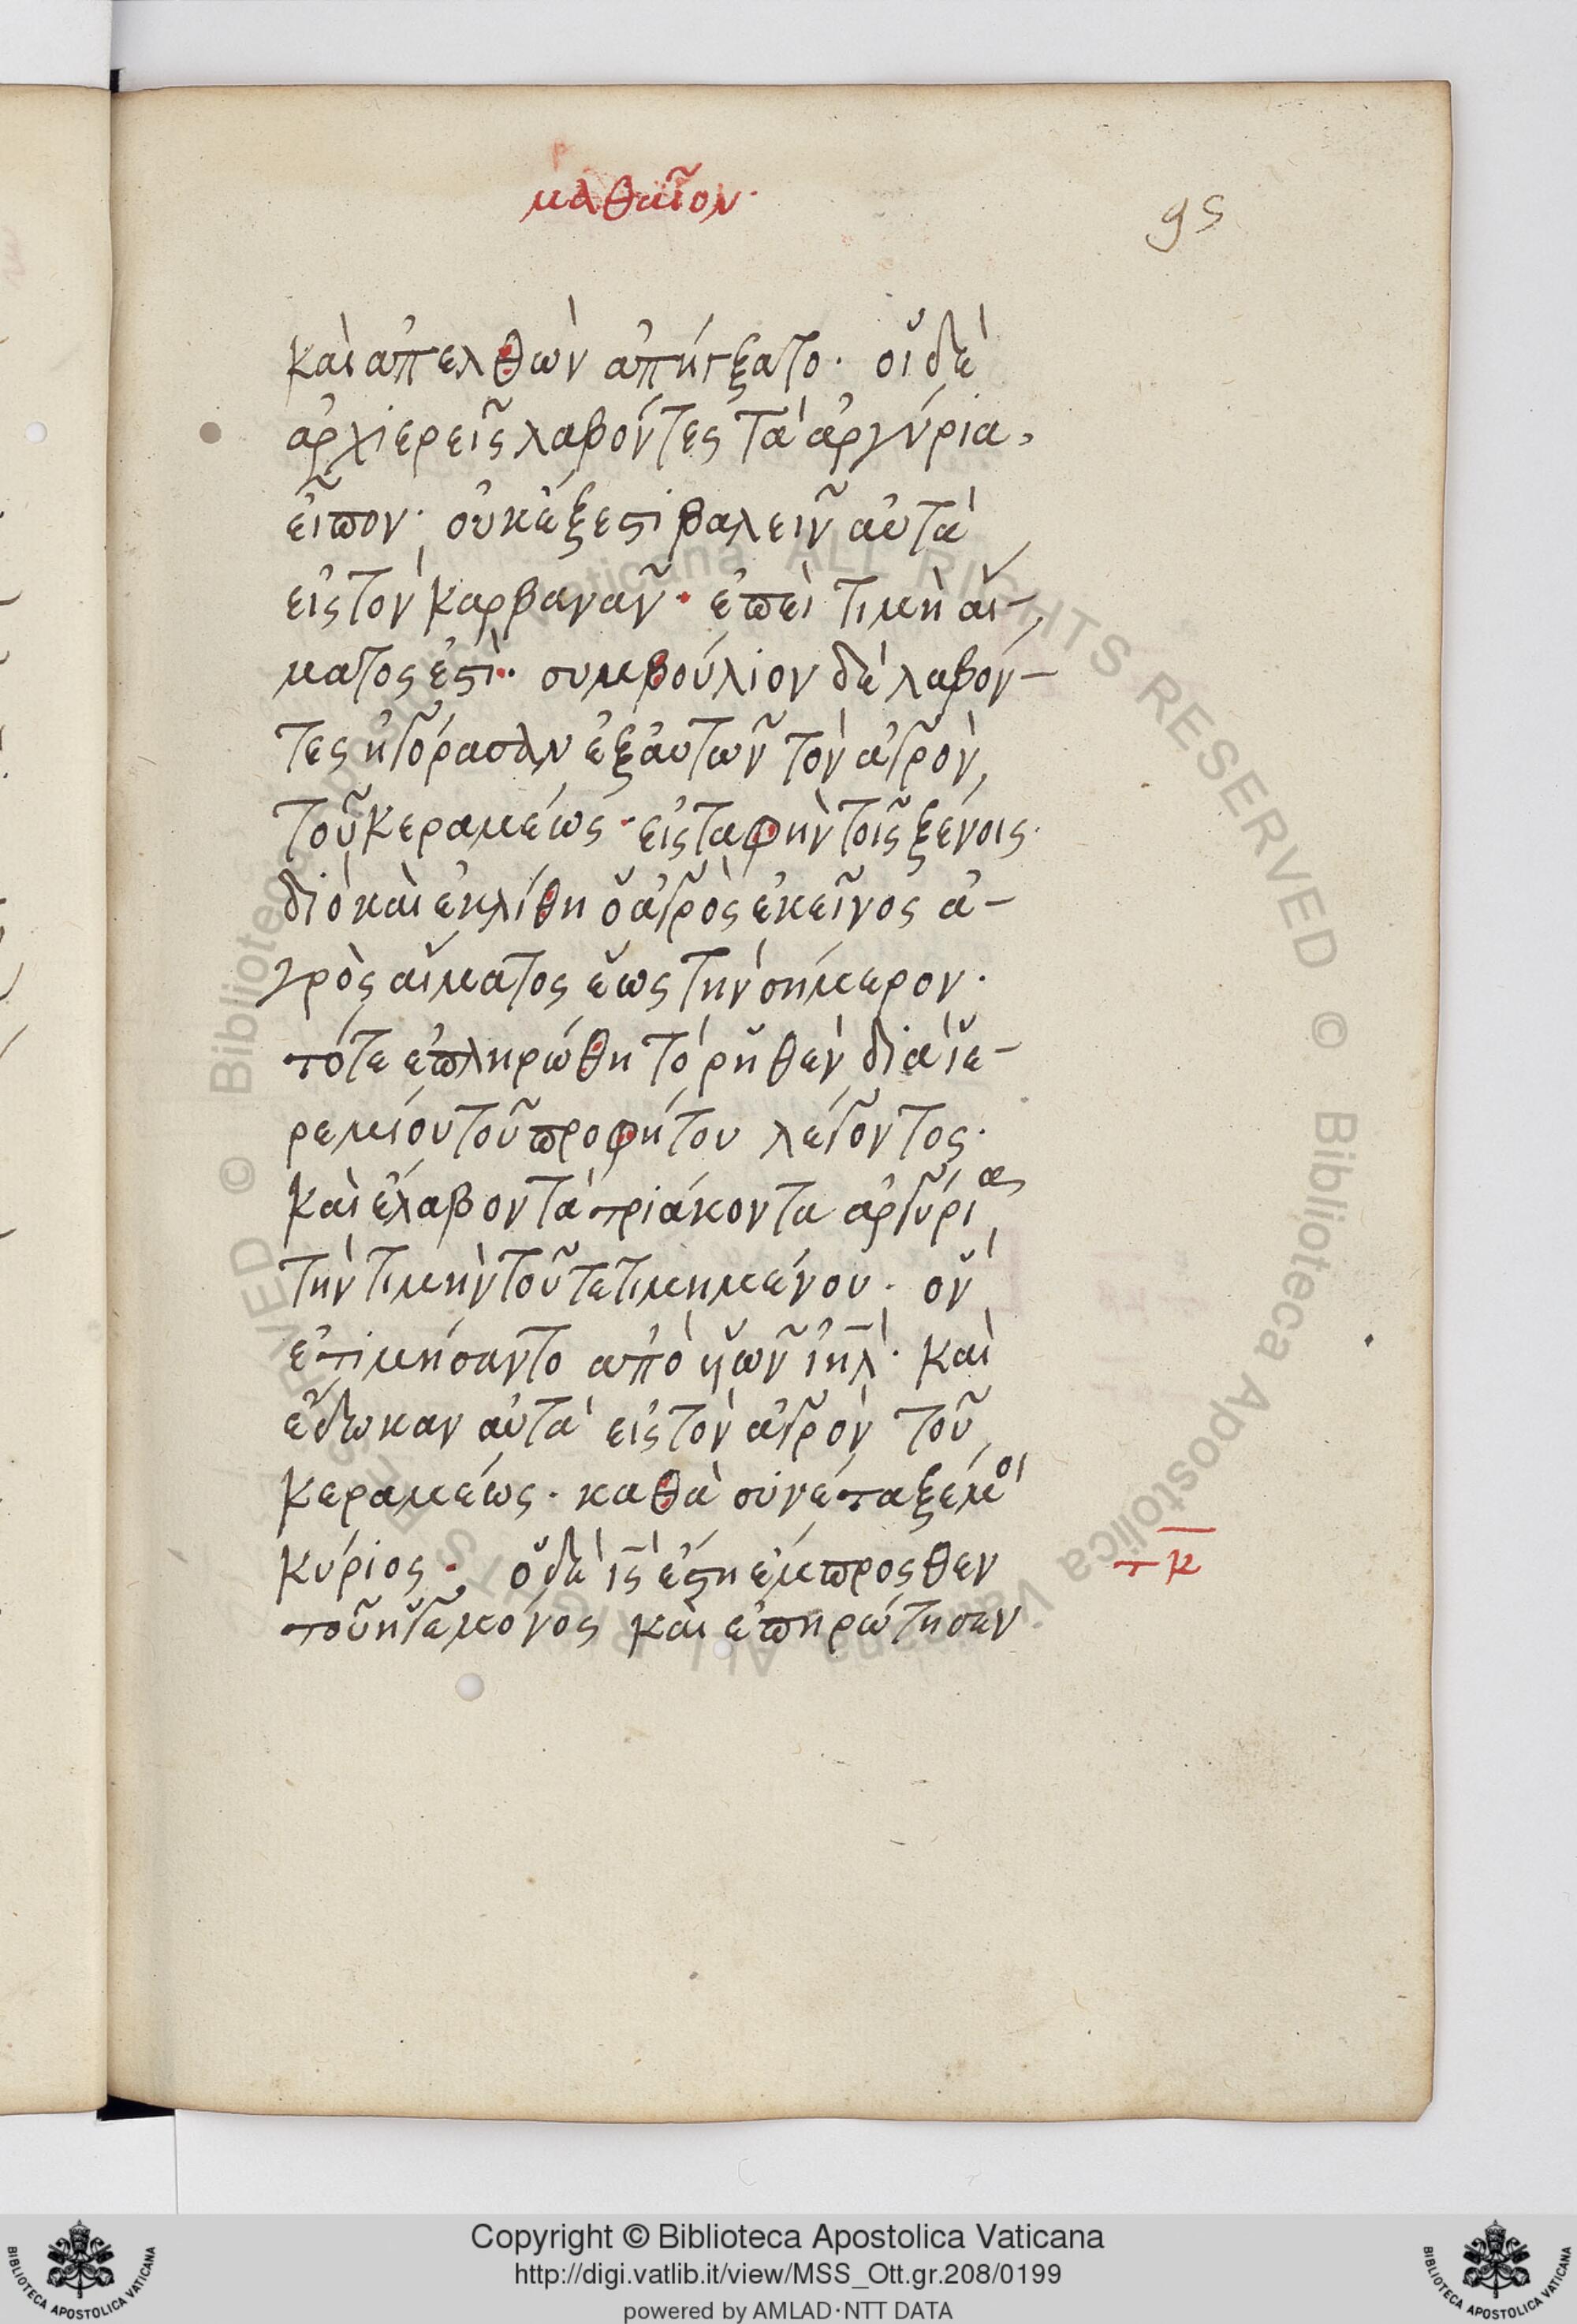 ματθαῖον·
95
καὶ ἀπελθὼν ἀπήγξατο· οἱ δὲ
ἀρχιερεῖς λαβόντες τὰ ἀργύρια,
εἶπον· οὐκ ἔξεστι βαλεῖν αὐτὰ
εἰς τὸν καρβανᾶν· ἐπεὶ τιμὴ αἵ-
ματος ἐστὶ· συμβούλιον δὲ λαβόν-
τες ἠγόρασαν ἐξ αὐτῶν τὸν ἀγρὸν
τοῦ κεραμέως· εἰς ταφὴν τοῖς ξένοις·
διὸ καὶ ἐκλίθη ὁ ἀγρὸς ἐκεῖνος ἀ-
γρὸς αἵματος ἕως τὴν σήμερον·
τότε ἐπληρώθη τὸ ῥηθὲν διὰ ἱε-
ρεμίου τοῦ προφήτου λέγοντος·
καὶ ἔλαβον τὰ τριάκοντα ἀργύρια
τὴν τιμὴν τοῦ τετιμημένου· ὃν
ἐτιμήσαντο ἀπὸ ὑῶν ἰηλ̅· καὶ
ἔδωκαν αὐτὰ εἰς τὸν ἀγρὸν τοῦ
κεραμέως· καθὰ συνέταξέ μοι
κύριος· ὁ δὲ ις̅ ἔστη ἔμπροσθεν
τοῦ ἡγεμόνος καὶ ἐπηρώτησεν
τκ̅
Copyright © Biblioteca Apostolica Vaticana
http://digi.vatlib.it/view/MSS_Ott.gr.208/0199
powered by AMLAD·NTT DATA
BIBLIOTECA APOSTOLICA VATICANA
BIBLIOTECA APOSTOLICA VATICANA
© Biblioteca Apostolica Vaticana ALL RIGHTS RESERVED © Biblioteca Apostolica Vaticana ALL RIGHTS RESERVED